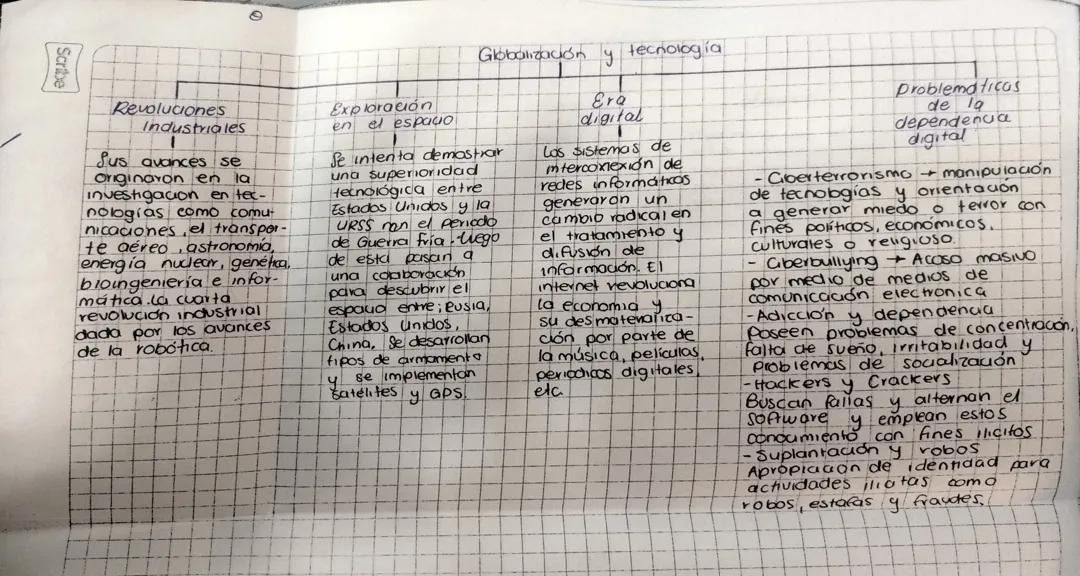 Scribe
Globalización y tecnología
Revoluciones
Industriales
Sus avances se
originaron en la
investigación en tec-
nologías como comu
nicaciones, el transpor-
te aéreo, astronomía,
energía nuclear, genética,
bioingeniería e infor-
mática. La cuarta
revolución industrial
dada por los avances
de la robótica.
Exploración
en el espacio
Se intenta demostrar
una superioridad
tecnológica entre
Estados Unidos y la
URSS en el periodo
de Guerra Fría. Luego
de esta pasan a
una colaboración
para descubrir el
espacio entre; Rusia,
Estados Unidos,
China, Se desarrollan
tipos de armamento
y se implementan
satélites y GPS.
Era
digital
Los sistemas de
interconexión de
redes informáticas
generaron un
cambio radical en
el tratamiento y
difusión de
información. El
internet revoluciona
la economía y
su desmaterializa-
ción por parte de
la música, películas,
periodicos digitales,
etc.
Problemáticas
de la
dependencia
digital
- Ciberterrorismo → manipulación
de tecnologías y orientación
a generar miedo o terror con
fines políticos, económicos,
culturales o religioso.
- Ciberbullying → Acoso masivo
por medio de medios de
comunicación electronica
- Adicción y dependencia
Poseen problemas de concentración,
falta de sueño, irritabilidad y
problemas de socialización
- Hackers y Crackers
Buscan fallas y alternan el
software y emplean estos
conocimiento con fines ilicitos
- Suplantación y robos
Apropiación de identidad para
actividades ilicitas como
robos, estafas y fraudes.